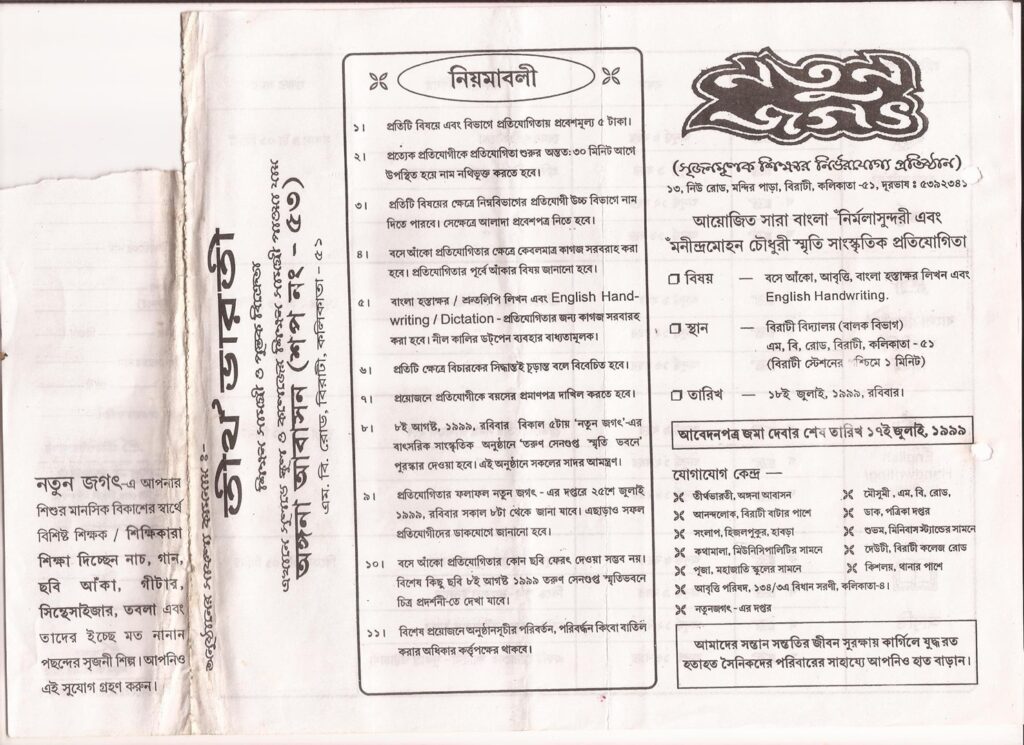 নতুন জগৎ-এ আপনার
শিশুর মানসিক বিকাশের স্বার্থে
বিশিষ্ট শিক্ষক / শিক্ষিকারা
শিক্ষা দিচ্ছেন নাচ, গান,
ছবি আঁকা, গীটার,
সিন্থেসাইজার, তবলা এবং
তাদের ইচ্ছে মত নানান
পছন্দের সৃজনী শিল্প। আপনিও
এই সুযোগ গ্রহণ করুন।
অনুষ্ঠানের সাফল্য কামনায় :-
তীর্থ ভারতী
শিক্ষার সামগ্রী ও পুস্তক বিক্রেতা
অঙ্গনা আবাসন (শপ নং - ৫৩)
এম. বি. রোড, বিরাটী, কলিকাতা - ৫১
নিয়মাবলী
১। প্রতিটি বিষয়ে এবং বিভাগে প্রতিযোগিতায় প্রবেশমূল্য ৫ টাকা।
২। প্রত্যেক প্রতিযোগীকে প্রতিযোগিতা শুরুর অন্তত: ৩০ মিনিট আগে
উপস্থিত হয়ে নাম নথিভুক্ত করতে হবে।
৩। প্রতিটি বিষয়ের ক্ষেত্রে নিম্নবিভাগের প্রতিযোগী উচ্চ বিভাগে নাম
দিতে পারবে। সেক্ষেত্রে আলাদা প্রবেশপত্র নিতে হবে।
৪। বসে আঁকো প্রতিযোগিতার ক্ষেত্রে কেবলমাত্র কাগজ সরবরাহ করা
হবে। প্রতিযোগিতার পূর্বে আঁকার বিষয় জানানো হবে।
৫। বাংলা হস্তাক্ষর / শ্রুতলিপি লিখন এবং English Hand-
writing / Dictation - প্রতিযোগিতার জন্য কাগজ সরবরাহ
করা হবে। নীল কালির ডট্‌পেন ব্যবহার বাধ্যতামূলক।
৬। প্রতিটি ক্ষেত্রে বিচারকের সিদ্ধান্তই চূড়ান্ত বলে বিবেচিত হবে।
৭। প্রয়োজনে প্রতিযোগীকে বয়সের প্রমাণপত্র দাখিল করতে হবে।
৮। ৮ই আগষ্ট, ১৯৯৯, রবিবার বিকাল ৫টায় 'নতুন জগৎ'-এর
বাৎসরিক সাংস্কৃতিক অনুষ্ঠানে 'তরুণ সেনগুপ্ত স্মৃতি ভবনে'
পুরস্কার দেওয়া হবে। এই অনুষ্ঠানে সকলের সাদর আমন্ত্রণ।
৯। প্রতিযোগিতার ফলাফল নতুন জগৎ - এর দপ্তরে ২৫শে জুলাই
১৯৯৯, রবিবার সকাল ৮টা থেকে জানা যাবে। এছাড়াও সফল
প্রতিযোগীদের ডাকযোগে জানানো হবে।
১০। বসে আঁকো প্রতিযোগিতার কোন ছবি ফেরৎ দেওয়া সম্ভব নয়।
বিশেষ কিছু ছবি ৮ই আগষ্ট ১৯৯৯ তরুণ সেনগুপ্ত স্মৃতিভবনে
চিত্র প্রদর্শনী-তে দেখা যাবে।
১১। বিশেষ প্রয়োজনে অনুষ্ঠানসূচীর পরিবর্তন, পরিবর্দ্ধন কিংবা বাতিল
করার অধিকার কর্তৃপক্ষের থাকবে।
নতুন
জগৎ
(সৃজনমূলক শিল্পচর্চার নির্ভরযোগ্য প্রতিষ্ঠান)
১৩, নিউ রোড, মন্দির পাড়া, বিরাটী, কলিকাতা -৫১, দূরভাষ : ৫৩৯২৩৪১
আয়োজিত সারা বাংলা নির্মলাসুন্দরী এবং
মনীন্দ্রমোহন চৌধুরী স্মৃতি সাংস্কৃতিক প্রতিযোগিতা
বিষয় — বসে আঁকো, আবৃত্তি, বাংলা হস্তাক্ষর লিখন এবং
English Handwriting.
স্থান — বিরাটী বিদ্যালয় (বালক বিভাগ)
এম, বি, রোড, বিরাটী, কলিকাতা - ৫১
(বিরাটী স্টেশনের পশ্চিমে ১ মিনিট)
তারিখ — ১৮ই জুলাই, ১৯৯৯, রবিবার।
আবেদনপত্র জমা দেবার শেষ তারিখ ১৭ই জুলাই, ১৯৯৯
যোগাযোগ কেন্দ্র —
তীর্থভারতী, অঙ্গনা আবাসন
আনন্দলোক, বিরাটী বাটার পাশে
সংলাপ, হিজলপুকুর, হাবড়া
কথামালা, মিউনিসিপালিটির সামনে
পূজা, মহাজাতি স্কুলের সামনে
আবৃত্তি পরিষদ, ১৩৪/৩এ বিধান সরণী, কলিকাতা-৪।
নতুনজগৎ -এর দপ্তর
মৌসুমী , এম, বি, রোড,
ডাক, পত্রিকা দপ্তর
শুভম, মিনিবাস স্ট্যান্ডের সামনে
দেউটী, বিরাটী কলেজ রোড
কিশলয়, থানার পাশে
আমাদের সন্তান সন্ততির জীবন সুরক্ষায় কার্গিলে যুদ্ধ রত
হতাহত সৈনিকদের পরিবারের সাহায্যে আপনিও হাত বাড়ান।